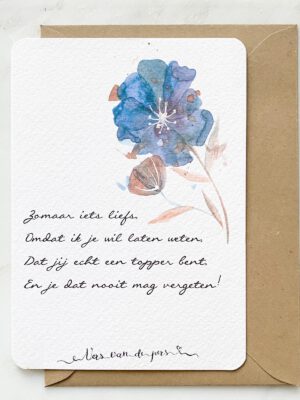 Zomaar iets liefs.
Omdat ik je wil laten weten.
Dat jij echt een topper bent.
En je dat nooit mag vergeten!
van de pers